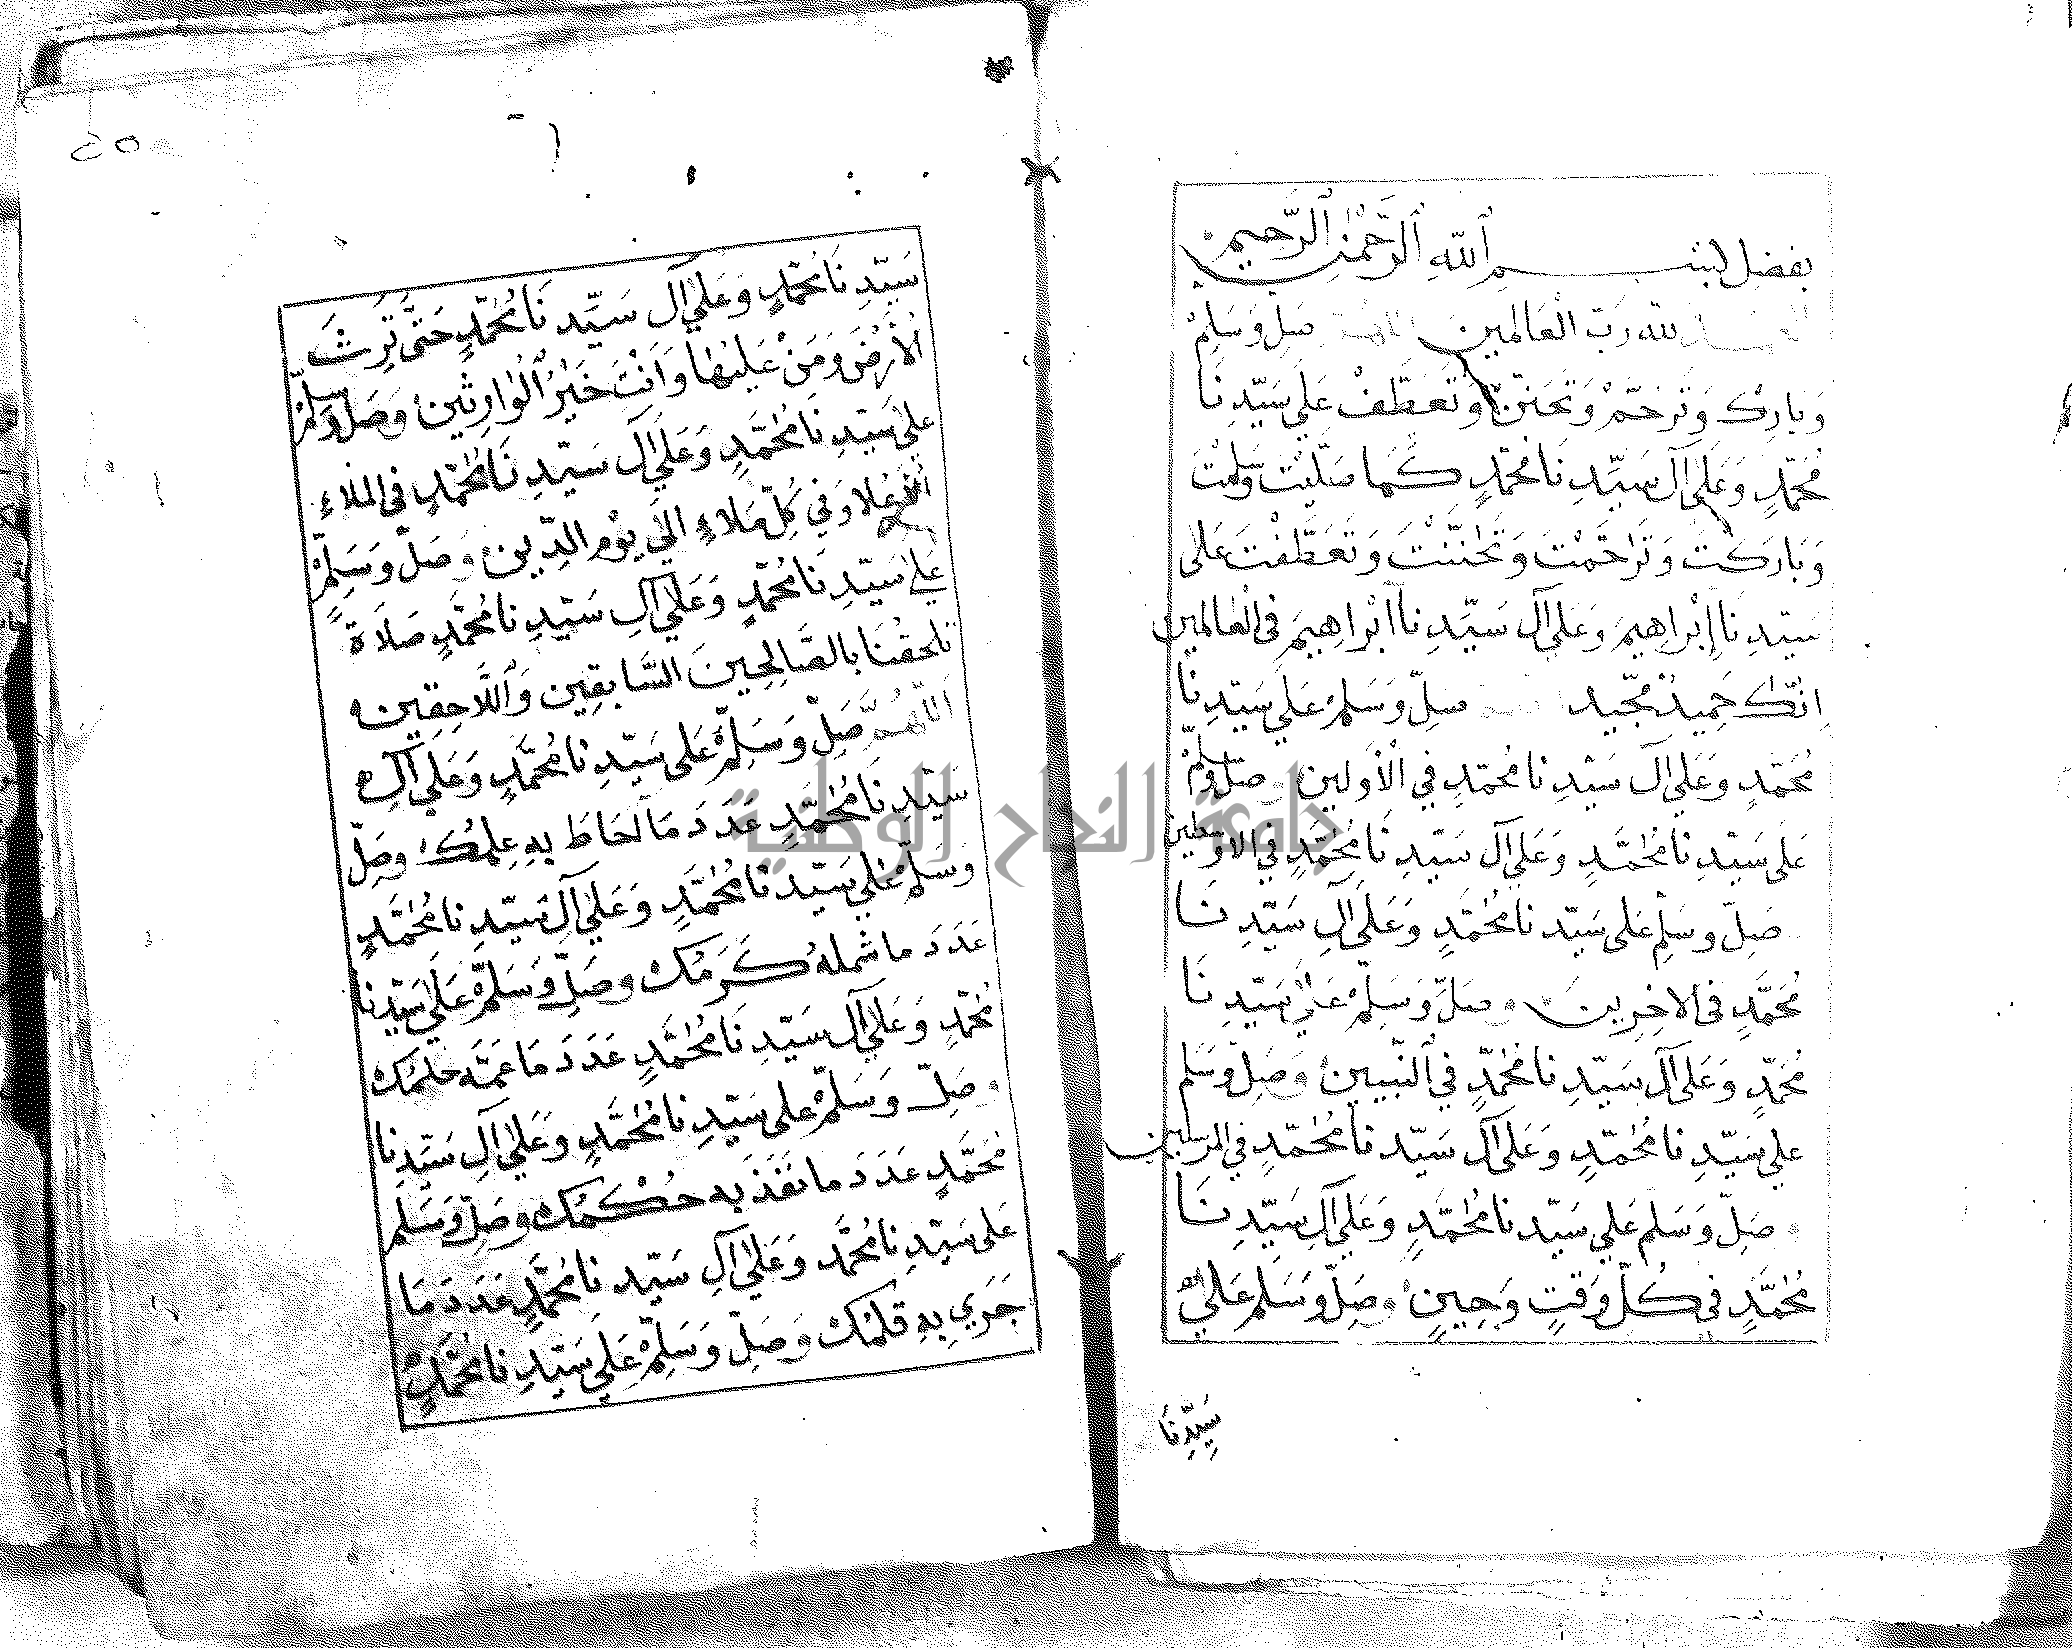 بفضل بسم الله الرحمن الرحيم
الحمد لله رب العالمين اللهم صل وسلم
وبارك وترحم وتحنن وتعطف على سيدنا
محمد وعلى آل سيدنا محمد كما صليت وسلمت
وباركت وتراحمت وتحاننت وتعطفت على
سيدنا إبراهيم وعلى آل سيدنا ابراهيم في العالمين
انك حميد مجيد صل وسلم على سيدنا
محمد وعلى آل سيدنا محمد في الأولين وصل وسلم
على سيدنا محمد وعلى آل سيدنا محمد في الاوسطين
صل وسلم على سيدنا محمد وعلى آل سيدنا
محمد في الاخرين وصل وسلم على سيدنا
محمد وعلى آل سيدنا محمد في النبيين وصل وسلم
على سيدنا محمد وعلى آل سيدنا محمد في المرسلين
وصل وسلم علي سيدنا محمد وعلى آل سيدنا
محمد في كل وقت وحين وصل وسلم على
سيدنا
٢٥
سيدنا محمد وعلى آل سيدنا محمد حتى ترث
الأرض ومن عليها وأنت خير الوارثين وصل وسلم
على سيدنا محمد وعلى آل سيدنا محمد في الملاء
علا وفي كل ملاء الى يوم الدين وصل وسلم
على سيدنا محمد وعلى آل سيدنا محمد صلاة
تلحقنا بالصالحين السابقين واللاحقين
اللهم صل وسلم على سيدنا محمد وعلى آل
سيدنا محمد عدد ما احاط به علمك وصل
وسلم على سيدنا محمد وعلى آل سيدنا محمد
عدد ما شمله كرمك وصل وسلم على سيدنا
محمد وعلى آل سيدنا محمد عدد ما عمته حلمك
وصل وسلم على سيدنا محمد وعلى آل سيدنا
محمد عدد ما نفذ به حكمك وصل وسلم
على سيدنا محمد وعلى آل سيدنا محمد عدد ما
جرى به قلمك وصل وسلم على سيدنا محمد
جامعة النجاح الوطنية